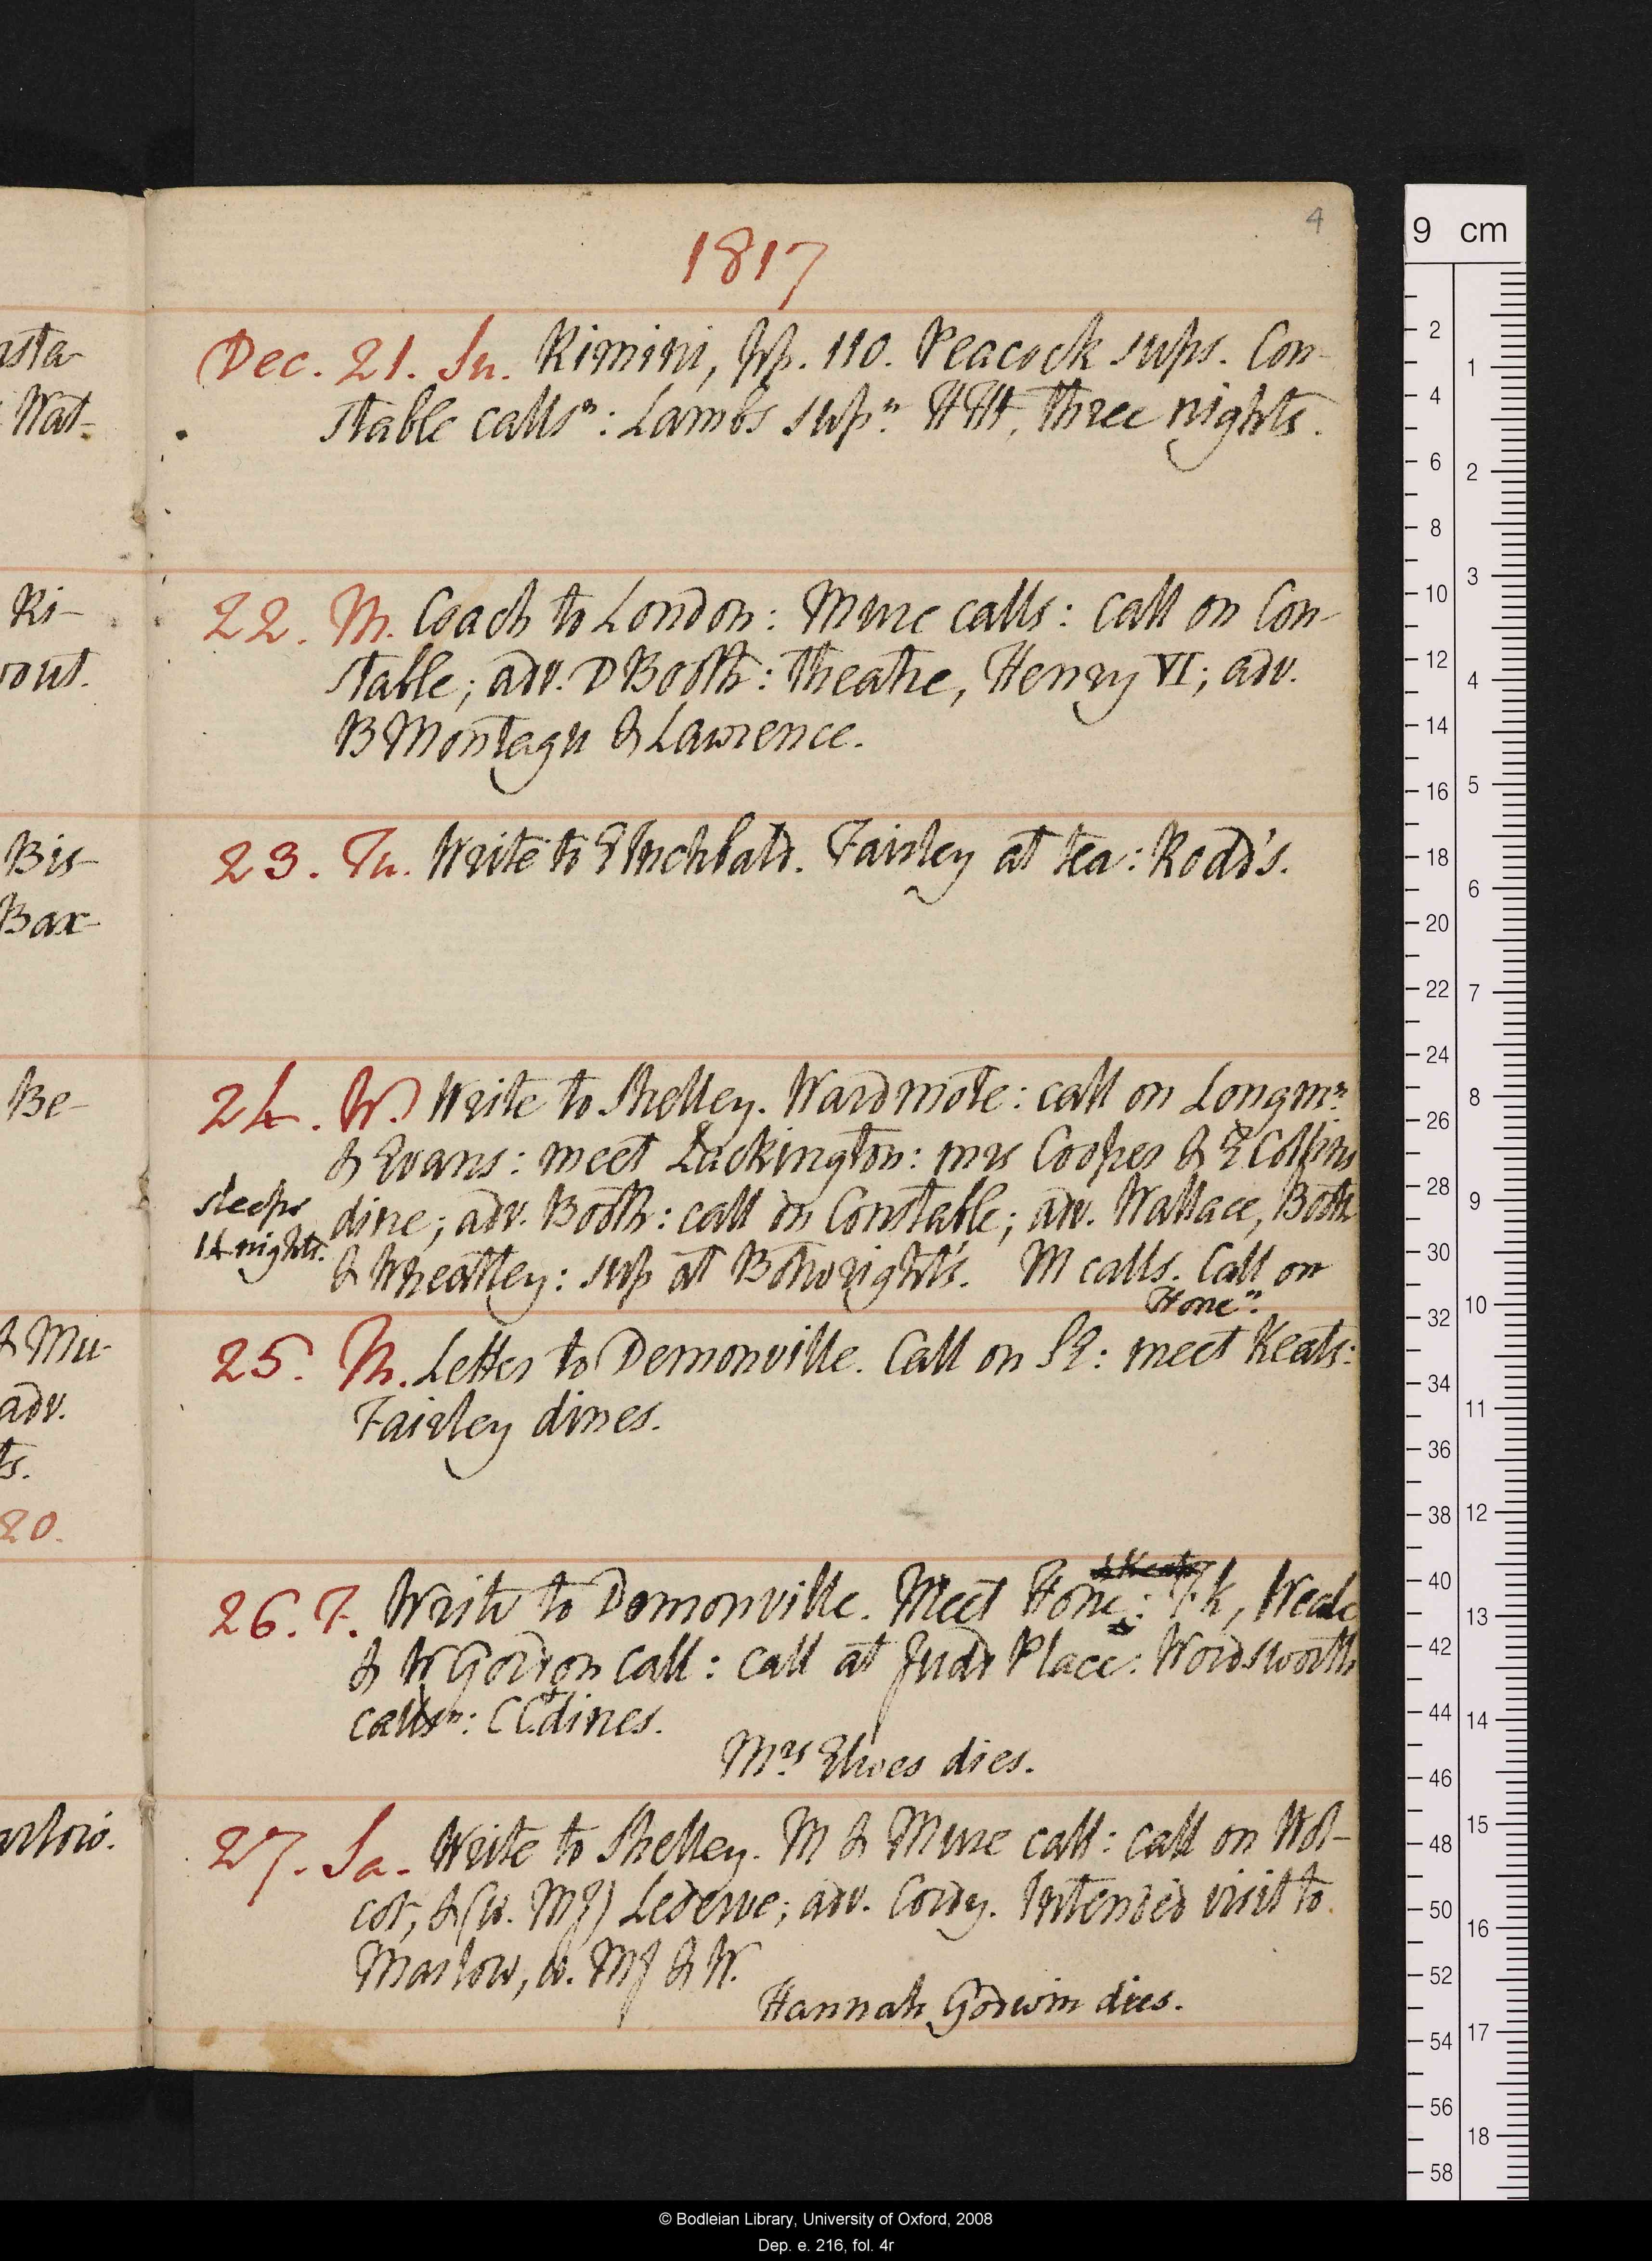 4
1817
Dec. 21. Su. Rimini, pp. 110. Peacock sups. Con-
stable callsⁿ: Lambs supⁿ. HH, three nights.
22. M. Coach to London: Mure calls: call on Con-
stable; adv. D Booth: theatre, Henry VI; adv.
B Montagu & Lawrence.
23. Tu. Write to E Inchbald. Fairley at tea: Rodd's.
24. W. Write to Shelley. Wardmote: call on Longmⁿ
& Evans: meet Lackington: mrs Cooper & E Collins
dine; adv. Booth: call on Constable; adv. Wallace, Booth
sleeps
14 nights.
& Wheatley: sup at Botwright's. M calls. Call on
Honeⁿ.
25. Th. Letter to Demonville. Call on SE: meet Keats:
Fairley dines.
& Keats
26. F. Write to Demonville. Meet Hone: T.k, Weale
& W Gordon call: call at Judd Place: Wordsworth
callsⁿ: CC dines.
Mrs Elwes dies.
27. Sa. Write to Shelley. M & Mure call: call on Wol-
cot, & (w. MJ) Lederve; adv. Cordy. Intended visit to
Marlow, w. MJ & W.
Hannah Godwin dies.
nsta-
Wat-
Ri-
rout.
Bis-
Bar-
Be-
& Mu-
adv.
ts.
20.
arlow.
9 cm
2
4
6
8
10
12
14
16
18
20
22
24
26
28
30
32
34
36
38
40
42
44
46
48
50
52
54
56
58
1
2
3
4
5
6
7
8
9
10
11
12
13
14
15
16
17
18
© Bodleian Library, University of Oxford, 2008
Dep. e. 216, fol. 4r